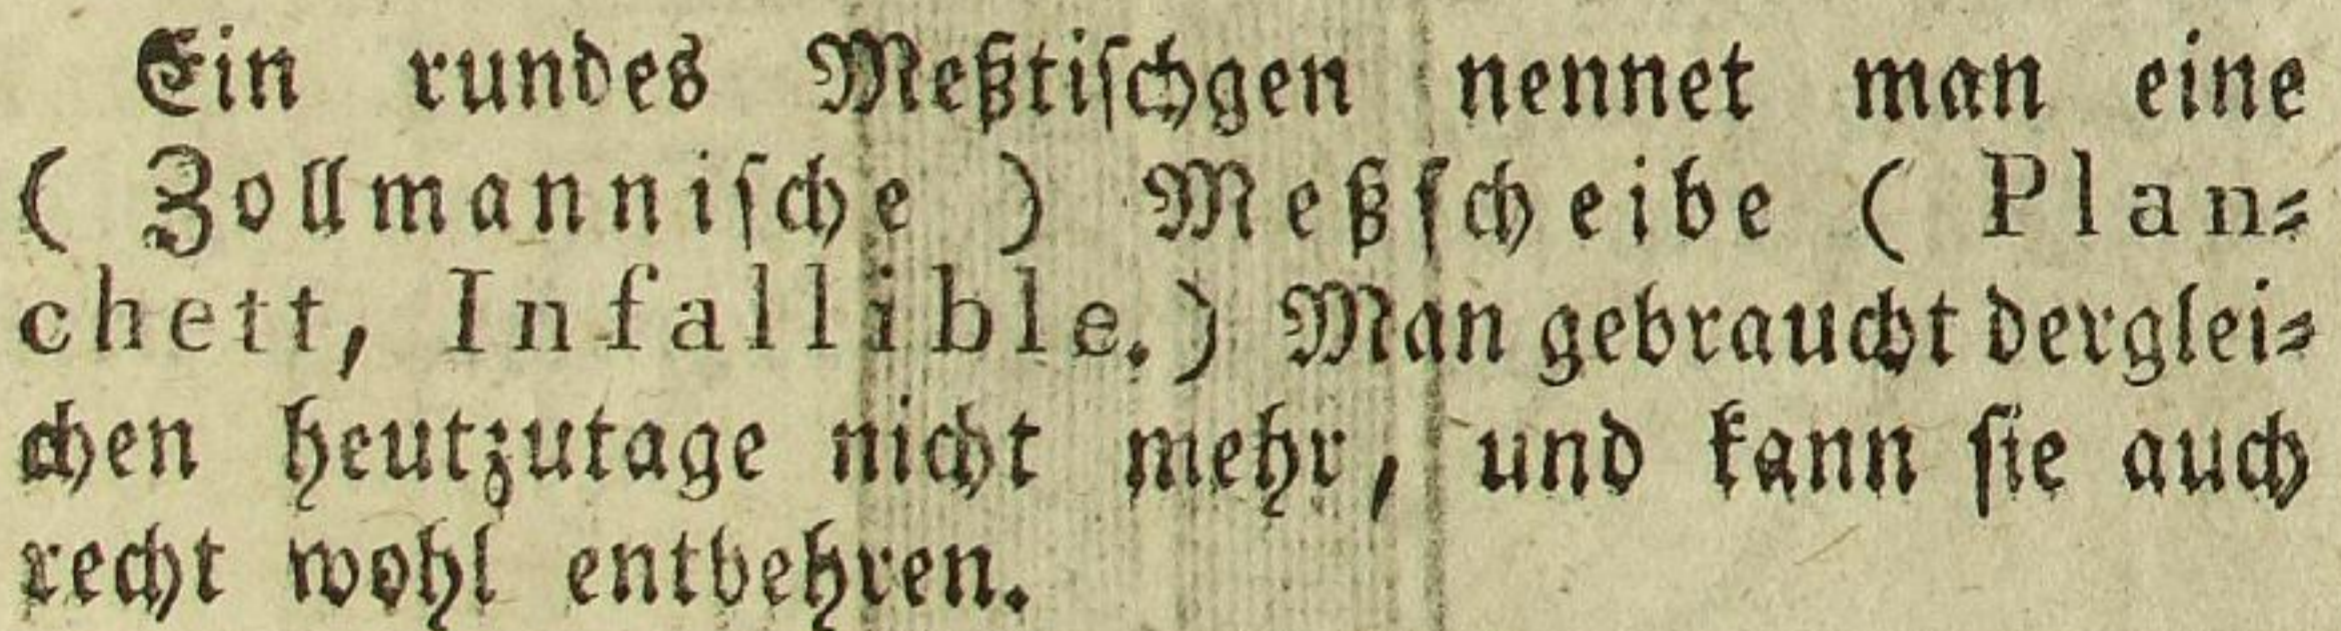 Ein rundes Meßtiſchgen nennet man eine
( Zollmanniſche ) Meßſcheibe ( Plan⸗
chett, Infallible.) Man gebraucht derglei⸗
chen heutzutage nicht mehr, und kann ſie auch
recht wohl entbehren.